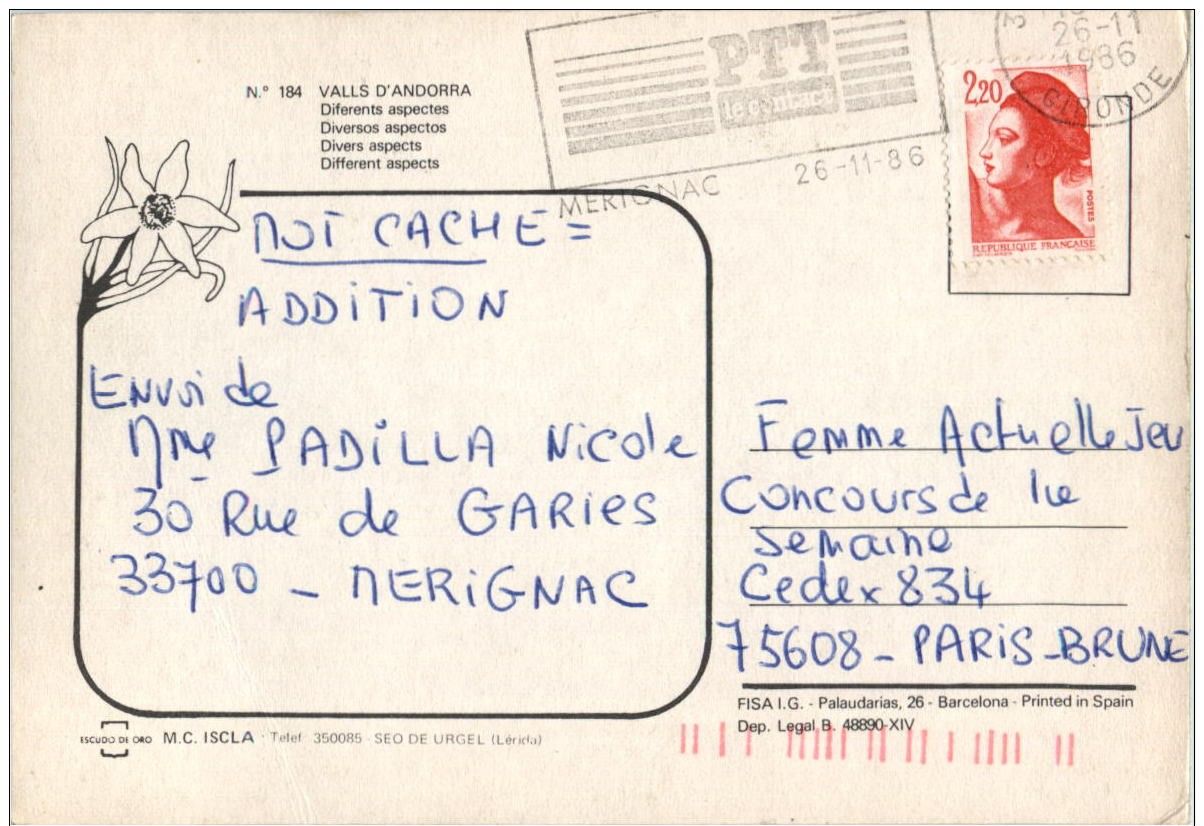 N.° 184 VALLS D'ANDORRA
Diferents aspectes
Diversos aspectos
Divers aspects
Different aspects
PTT
le contact
MERIGNAC 26-11-86
26-11
1986
GIRONDE
2,20
POSTES
REPUBLIQUE FRANÇAISE
MOT CACHE =
ADDITION
ENVOI de
Mme PADILLA Nicole
30 Rue de GARIES
33700 - MERIGNAC
Femme Actuelle Jeu
Concours de la
semaine
Cedex 834
75608 - PARIS - BRUNE
FISA I.G. - Palaudarias, 26 - Barcelona - Printed in Spain
Dep. Legal B. 48890-XIV
ESCUDO DE ORO M.C. ISCLA - Telef. 350085 - SEO DE URGEL (Lérida)